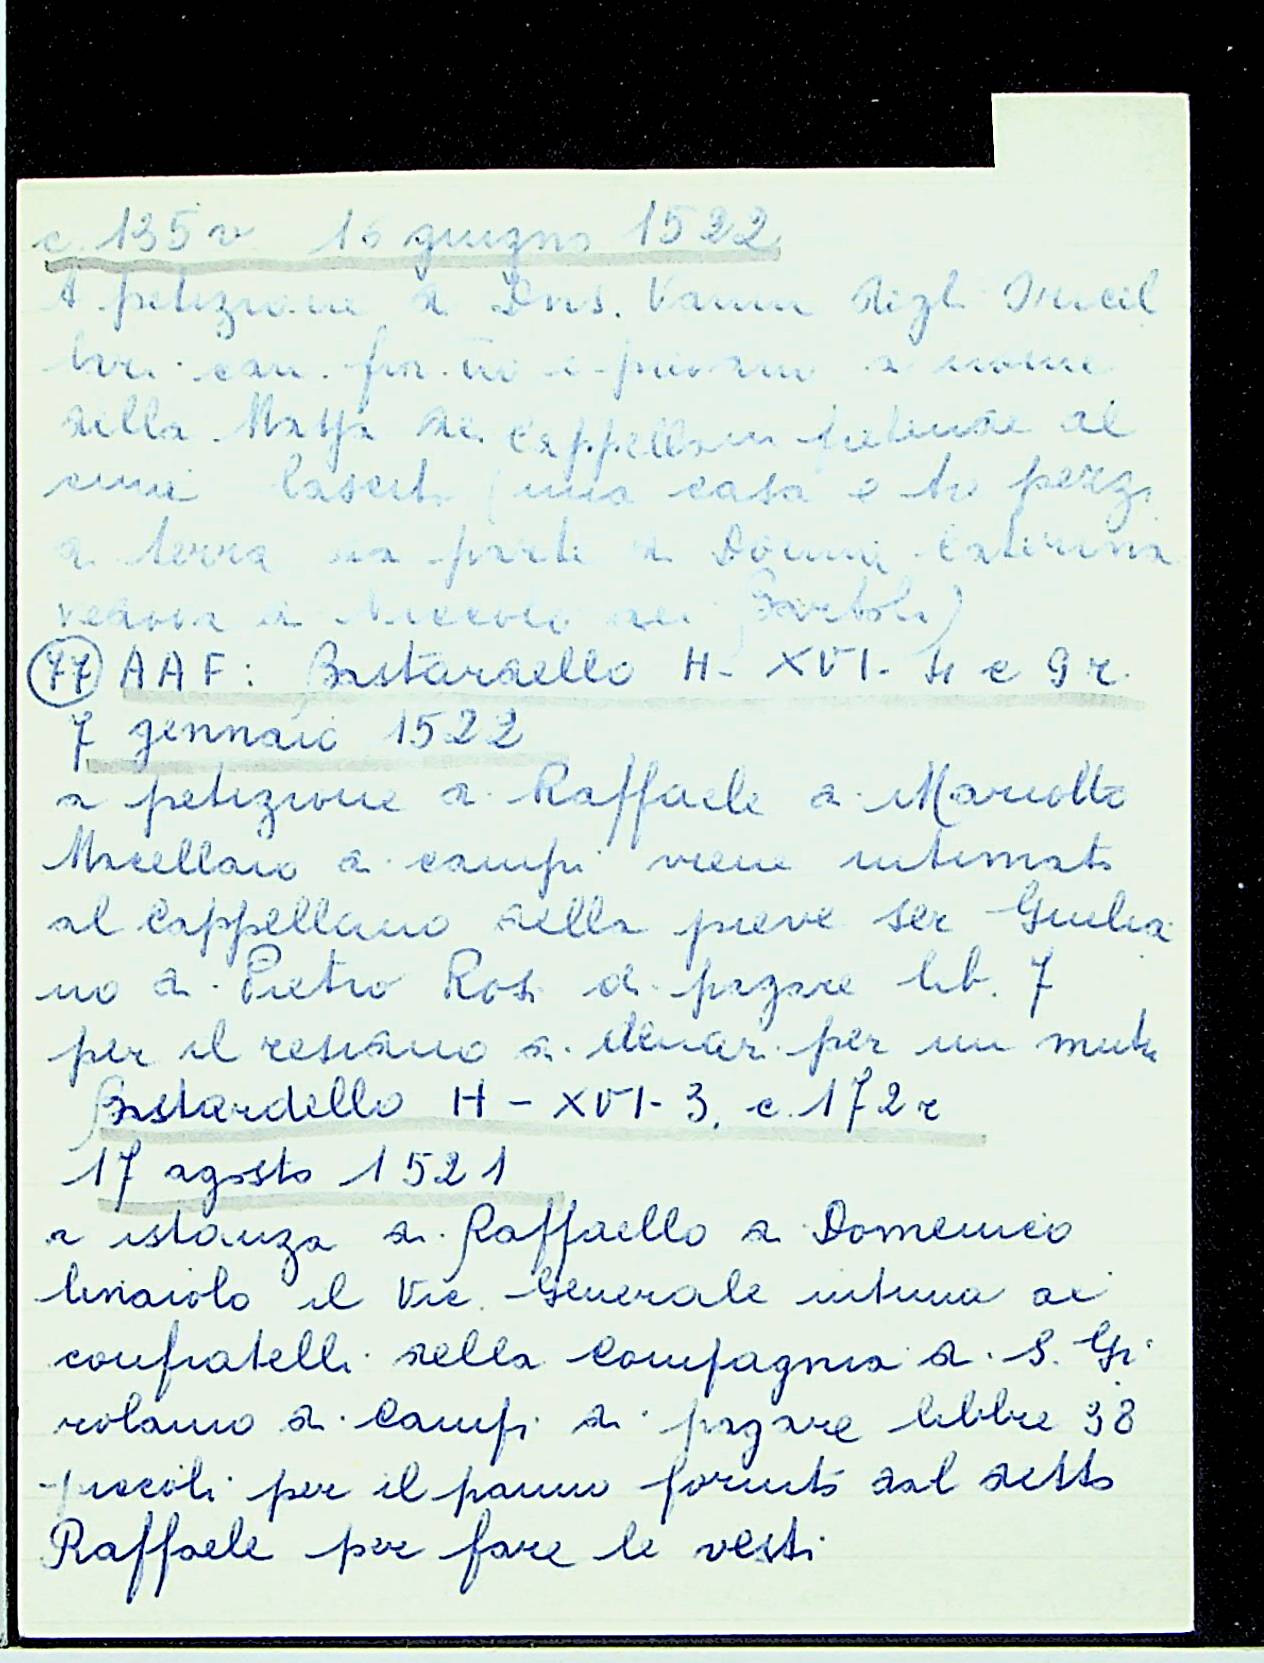 c. 135v 16 giugno 1522
A petizione di Dns. Vanni degli
can. fior.no e piovano a nome
della Massa dei Cappellani pretende al
cuni lasciti (una casa e tre pezzi
di terra da parte di Donna Caterina
vedova di Niccolò dei Bartoli)
77 AAF: Bastardello H-XVI-4 c 9r.
7 gennaio 1522
a petizione di Raffaele di Mariotto
Macellaio di Campi viene intimato
al Cappellano della pieve ser Giulia
no di Pietro Rosi di pagare lib. 7
per il residuo di denari per un mutuo
Bastardello H-XVI-3, c. 172r
17 agosto 1521
a istanza di Raffaello di Domenico
linaiolo il Vic. Generale intima ai
confratelli della Compagnia di S. Gi
rolamo di Campi di pagare libbre 38
piccoli per il panno fornito dal detto
Raffaele per fare le vesti